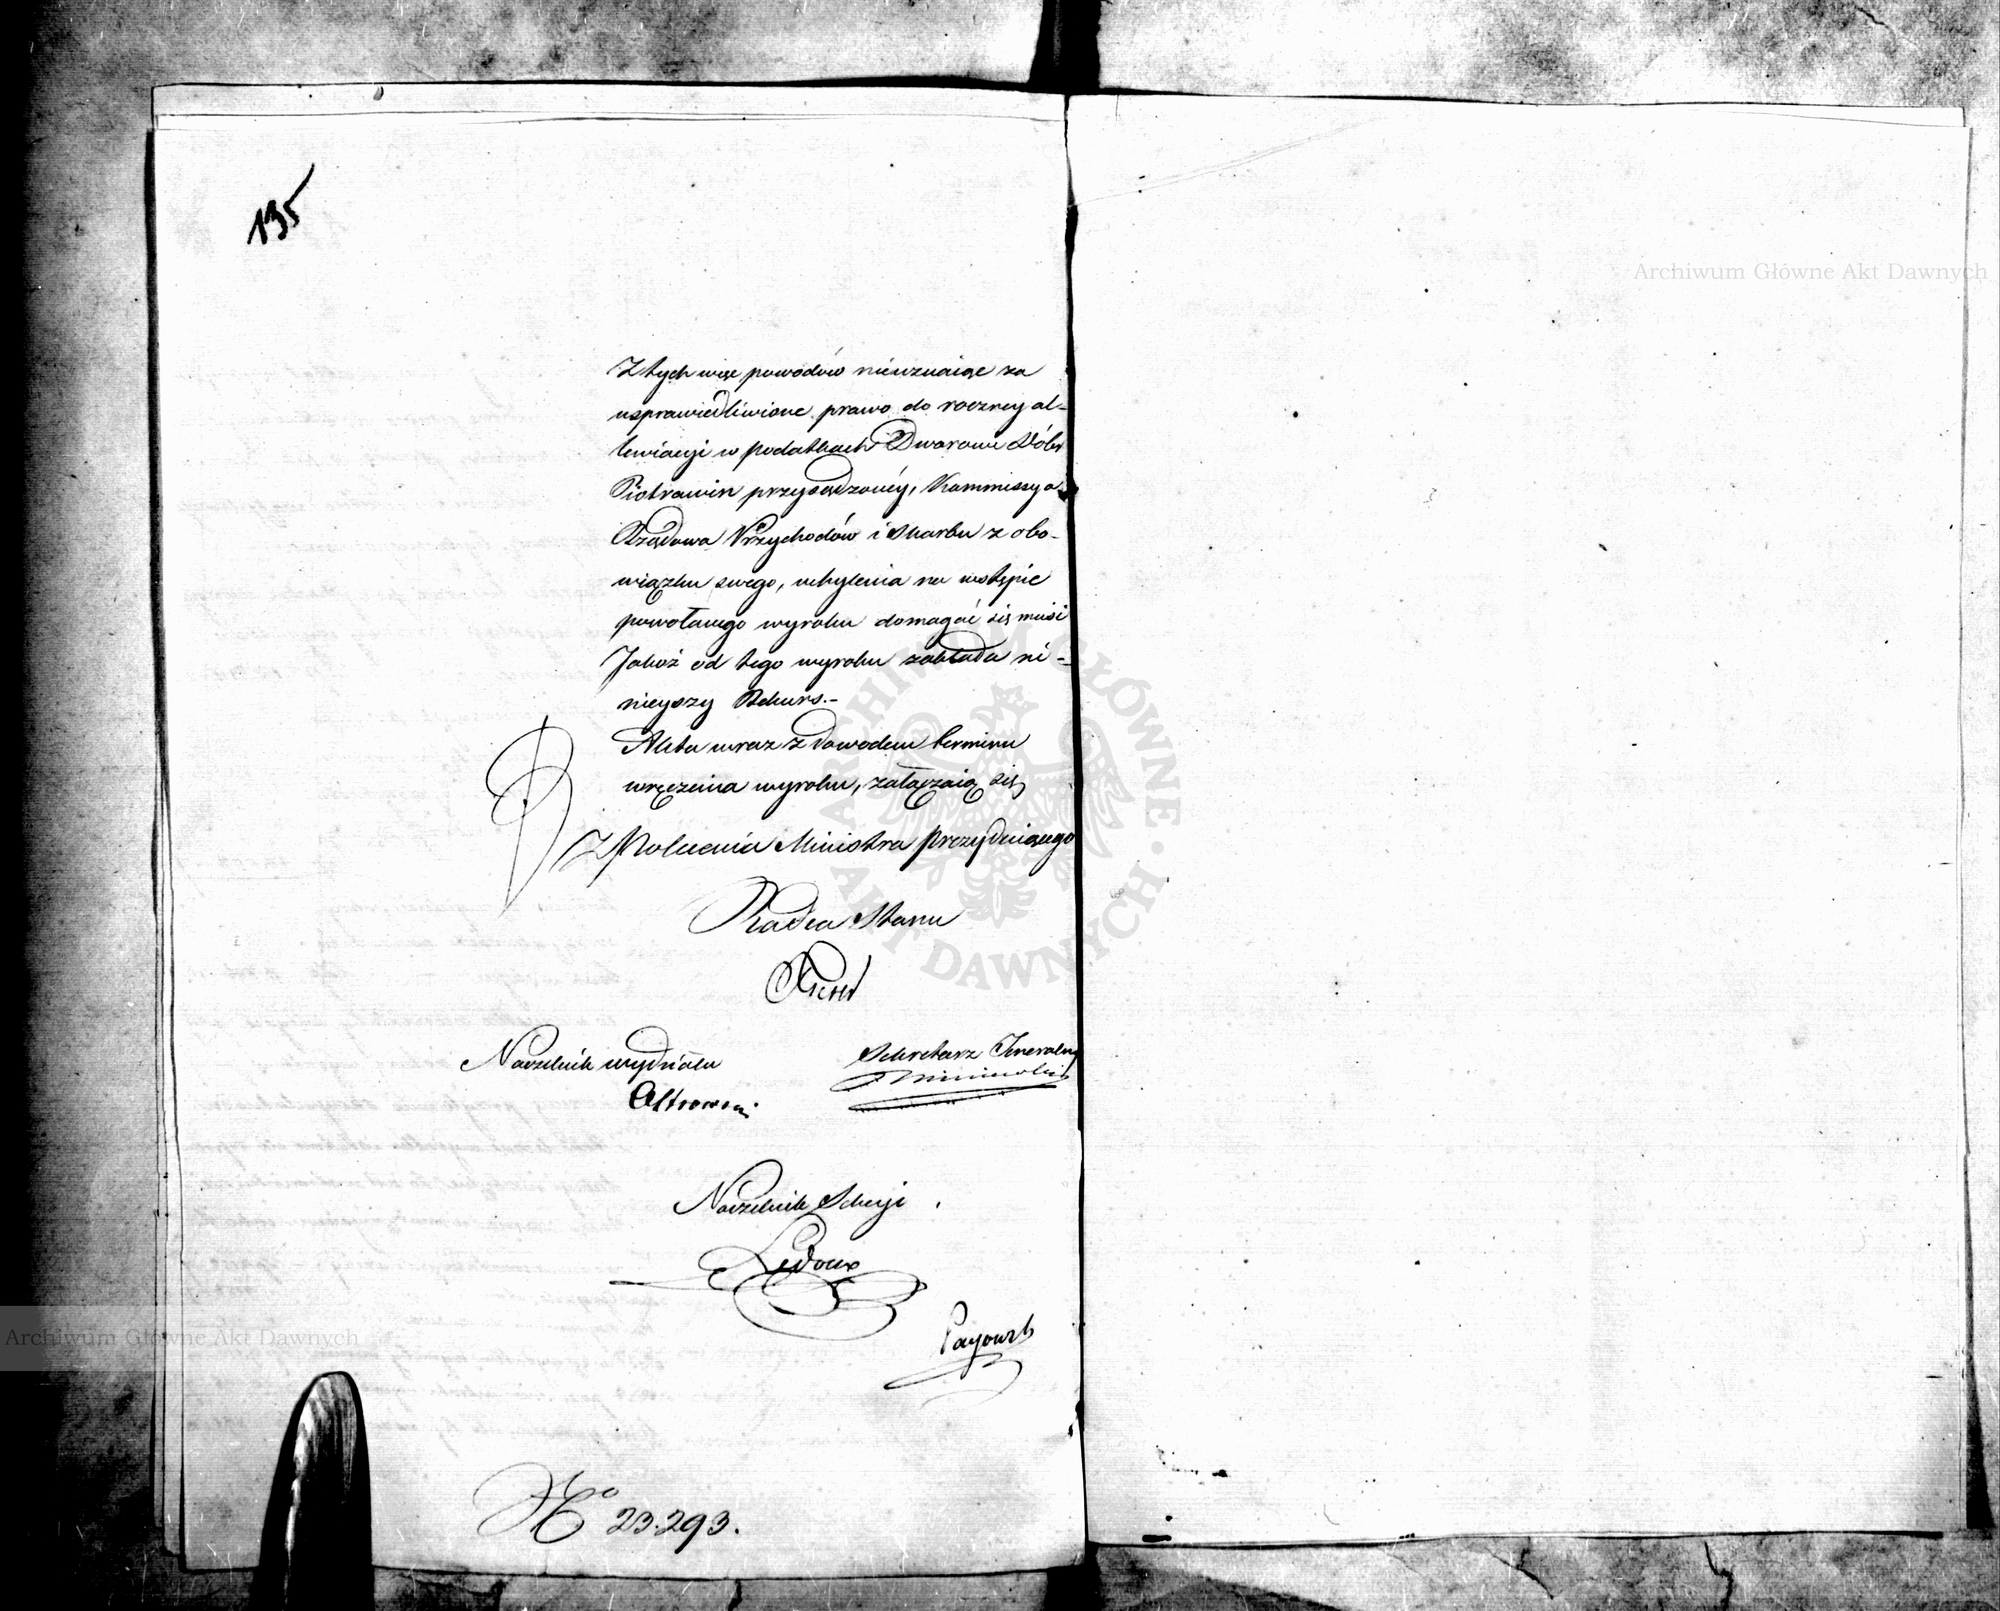 135
Z tych więc powodów nieuznaiąc za
usprawiedliwione prawo do roczney al-
lewiacyi w podatkach Dworowi Dóbr
Piotrawin przysądzoney, Kommissya
Rządowa Przychodów i Skarbu z obo-
wiązku swego, uchylenia na wstępie
powołanego wyroku domagać się musi
Jakoż od tego wyroku zakłada ni-
nieyszy Rekurs.-
Akta wraz z dowodem terminu
wręczenia wyroku, załączaią się
Z Polecenia Ministra Prezyduiącego
Radca Stanu
Naczelnik wydziału
Sekretarz Jeneralny
Naczelnik Sekcyi
Ledoux
No 23.293.
Archiwum Główne Akt Dawnych
Archiwum Główne Akt Dawnych
ARCHIWUM GŁÓWNE AKT DAWNYCH